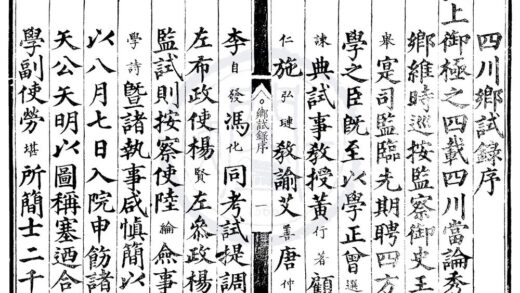 四川鄉試錄序
上御極之四載四川當論秀
鄉維時巡按監察御史王
舉寔司監臨先期聘四方
學之臣既至以學正曾選
諫典試事教授黃行若顧
仁施弘璉教諭艾善唐仲
鄉試錄序
一
李自發馮化同考試提調
左布政使楊賢左叅政楊
監試則按察使陸綸僉事
學詩暨諸執事咸慎簡以
以八月七日入院申飭諸
天公天明以圖稱塞迺合
學副使勞堪所簡士二千